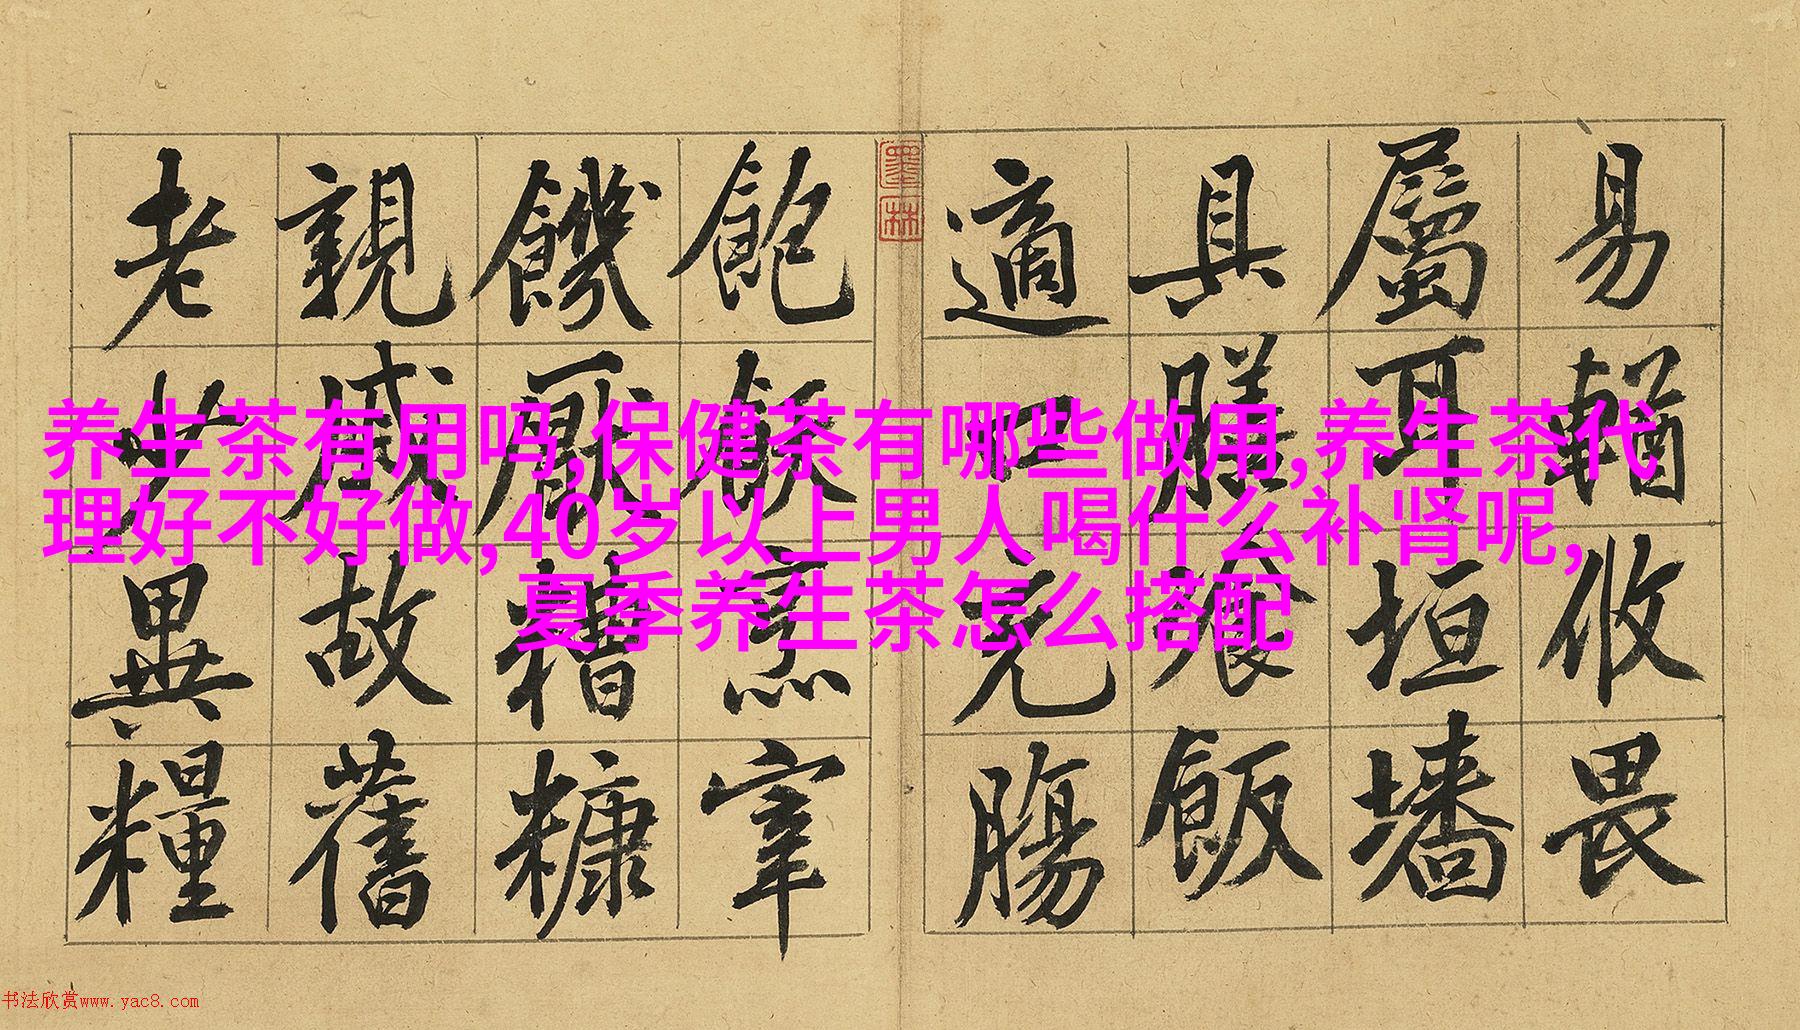 易輶攸畏
屬耳垣墻
具膳飡飯
適口充腸
墨林
飽飫烹宰
饑厭糟糠
親戚故舊
老少異糧
养生茶有用吗,保健茶有哪些做用,养生茶代
理好不好做,40岁以上男人喝什么补肾呢,
夏季养生茶怎么搭配
书法欣赏www.yac8.com